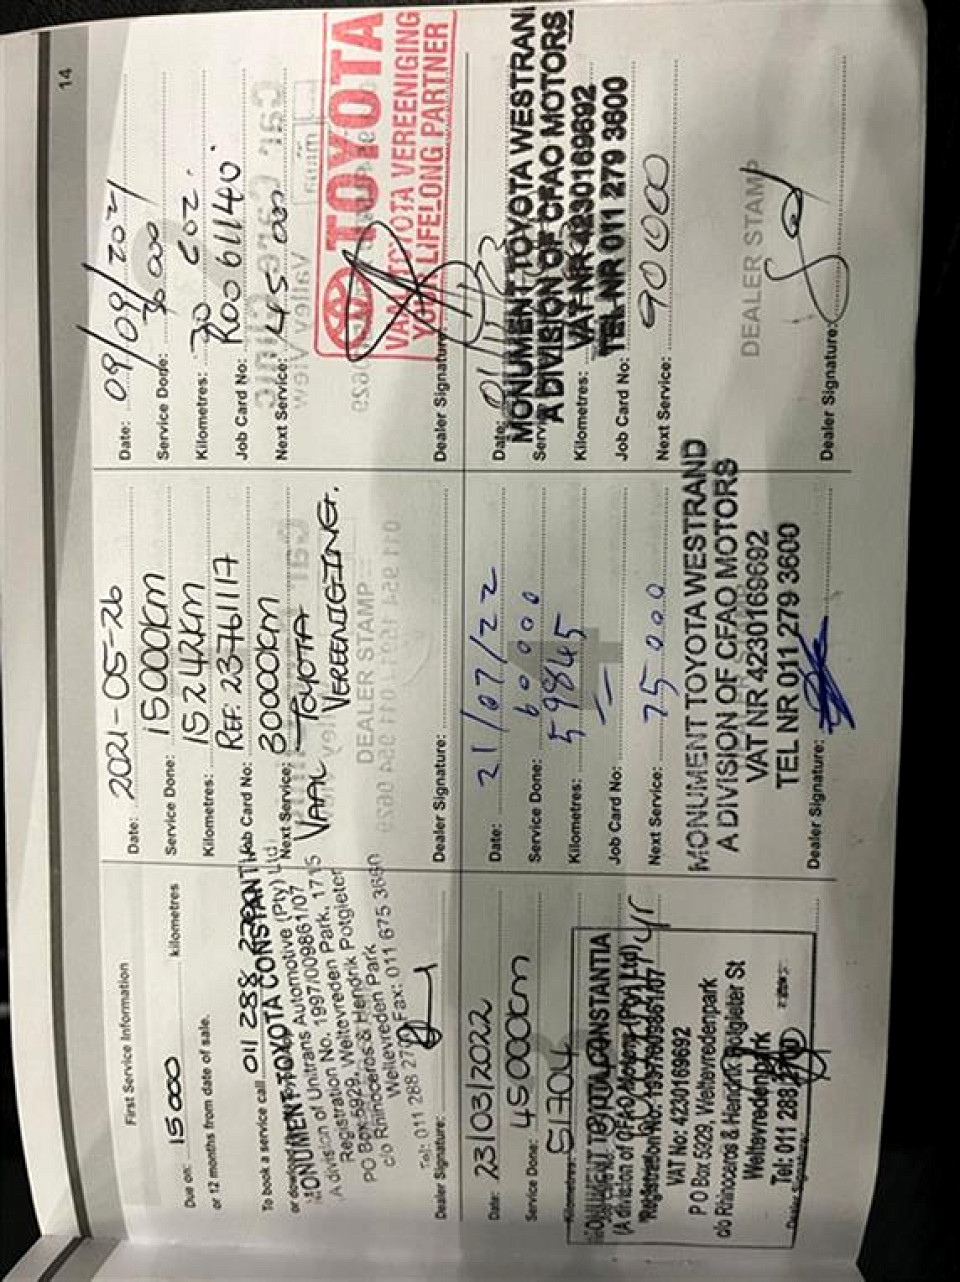 14
First Service Information
Due on: 15 000 kilometres
or 12 months from date of sale.
To book a service call 011 288
MONUMENT TOYOTA CONSTANTIA
A division of Unitrans Automotive (Pty) Ltd
Registration No. 1997/009861/07
PO Box 5929, Weltevreden Park, 1715
c/o Rhinoceros & Hendrik Potgieter
Weltevreden Park
Tel: 011 288 27 Fax: 011 675 3660
Dealer Signature:
Date: 2021-05-26
Service Done: 15000km
Kilometres: 15242km
Job Card No: REF. 23761117
Next Service: 30000km
VAAL TOYOTA
VEREENIGING.
DEALER STAMP
Dealer Signature:
Date: 09/09/2021
Service Done: 30000
Kilometres: 30 202.
Job Card No: R00611140
Next Service: 45 000
TOYOTA
VAAL TOYOTA VEREENIGING
YOUR LIFELONG PARTNER
Dealer Signature
Date: 23/03/2022
Service Done: 45000km
Kilometres: 51704
MONUMENT TOYOTA CONSTANTIA
(A division of CFAO Motors (Pty) Ltd)
Registration No: 1997/009861/07
VAT No: 4230169692
P O Box 5929, Weltevredenpark
c/o Rhinoceros & Hendrik Potgieter St
Weltevredenpark
Tel: 011 288
Date: 21/07/22
Service Done: 60000
Kilometres: 59845
Job Card No: —
Next Service: 75000
MONUMENT TOYOTA WESTRAND
A DIVISION OF CFAO MOTORS
VAT NR 4230169692
TEL NR 011 279 3600
Dealer Signature:
Date:
MONUMENT TOYOTA WESTRAN
A DIVISION OF CFAO MOTORS
VAT NR 4230169692
Kilometres:
TEL NR 011 279 3600
Job Card No:
Next Service: 90 000
DEALER STAMP
Dealer Signature: